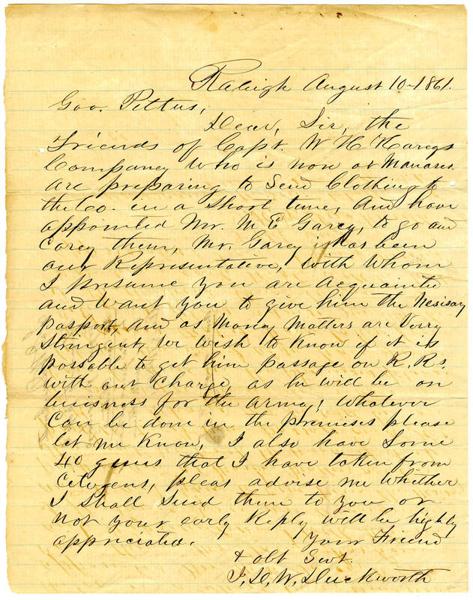 Raleigh August 10-1861.
Gov. Pettus,
Dear, Sir, the
Friends of Capt. W H Hardys
Company Who is now at Manasas
are preparing to Send Clothing to
the Co. in a Short time, And have
appointed Mr. M E Garey, to go and
Carey them, Mr. Garey is has been
our Representative, with Whom
I presume You are Acquainted
and Want You to give him the Nesisary
Pasport, And as Money Matters are Verry
Stringent, We Wish to Know if it is
possable to get him passage on R. Rs.
with out Charge, as he will be on
buisness for the Army, Whatever
Can be done in the premises please
let me Know, I also have Some
40 guns that I have taken from
Citizens, pleas advise me Whether
I Shall Send them to You or
Not Your early Reply will be highly
appreciated. Your Friend
& obt Svt.
W. Duckworth